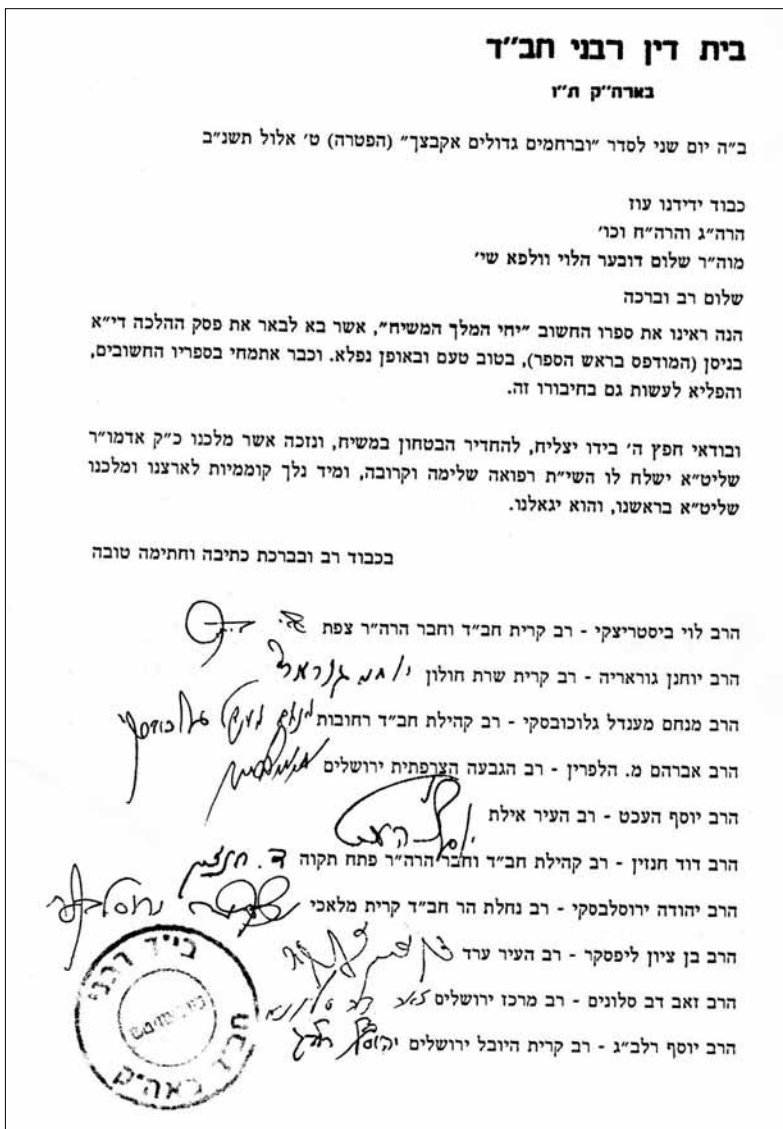 בית דין רבני חב״ד
בארה״ק ת״ו
ב״ה יום שני לסדר ״וברחמים גדולים אקבצך״ (הפטרה) ט׳ אלול תשנ״ב
כבוד ידידנו עוז
הרה״ג והרה״ח וכו׳
מוה״ר שלום דובער הלוי וולפא שי׳
שלום רב וברכה
הנה ראינו את ספרו החשוב ״יחי המלך המשיח״, אשר בא לבאר את פסק ההלכה די״א
בניסן (המודפס בראש הספר), בטוב טעם ובאופן נפלא. וכבר אתמחי בספריו החשובים,
והפליא לעשות גם בחיבורו זה.
ובודאי חפץ ה׳ בידו יצליח, להחדיר הבטחון במשיח, ונזכה אשר מלכנו כ״ק אדמו״ר
שליט״א ישלח לו השי״ת רפואה שלימה וקרובה, ומיד נלך קוממיות לארצנו ומלכנו
שליט״א בראשנו, והוא יגאלנו.
בכבוד רב ובברכת כתיבה וחתימה טובה
הרב לוי ביסטריצקי - רב קרית חב״ד וחבר הרה״ר צפת
הרב יוחנן גוראריה - רב קרית שרת חולון
הרב מנחם מענדל גלוכובסקי - רב קהילת חב״ד רחובות
הרב אברהם מ. הלפרין - רב הגבעה הצרפתית ירושלים
הרב יוסף העכט - רב העיר אילת
הרב דוד חנזין - רב קהילת חב״ד וחבר הרה״ר פתח תקוה
הרב יהודה ירוסלבסקי - רב נחלת הר חב״ד קרית מלאכי
הרב בן ציון ליפסקר - רב העיר ערד
הרב זאב דב סלונים - רב מרכז ירושלים
הרב יוסף רלב״ג - רב קרית היובל ירושלים
בי״ד רבני
חב״ד באה״ק